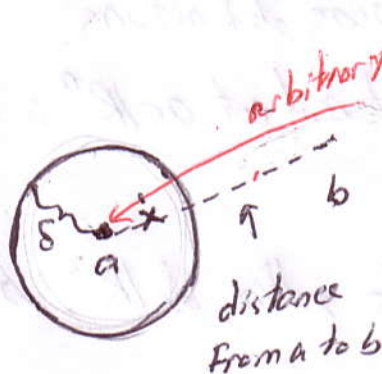 arbitrary
x
b
δ
a
distance
From a to b